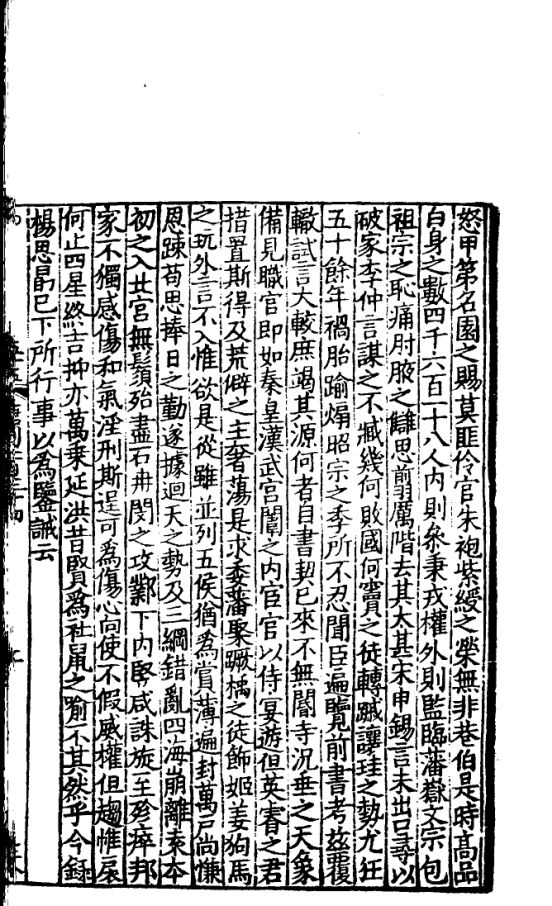 怒甲第名園之賜莫匪伶官朱袍紫綬之榮無非巷伯是時高品
白身之數四千六百一十八人内則叅秉戎權外則監臨藩嶽文宗包
祖宗之恥痛肘腋之讎思翦厲階去其太甚宋申錫言未出口尋以
破家李仲言謀之不臧幾何敗國何竇之徒轉蹴讓珪之勢尤狂
五十餘年禍胎踰煽昭宗之季所不忍聞臣遍覽前書考茲覆
轍試言大較庶竭其源何者自書契已來不無閽寺況垂之天象
備見職官即如秦皇漢武宮闈之内宦官以侍宴遊但英睿之君
措置斯得及荒僻之主奢蕩是求委藩聚蹶楀之徒飾姬姜狗馬
之玩外言不入惟欲是從雖並列五侯猶為賞薄遍封萬戸尚慊
恩踈苟思捧日之勤遂據迴天之勢及三綱錯亂四海崩離袁本
初之入北宮無鬚殆盡石冉閔之攻鄴下内豎咸誅旋至殄瘁邦
家不獨感傷和氣淫刑斯逞可為傷心向使不假威權但趨惟扆
何止四星終吉抑亦萬乗延洪昔賢為社鼠之喻不其然乎今錄
楊思勗已下所行事以為鑒誡云